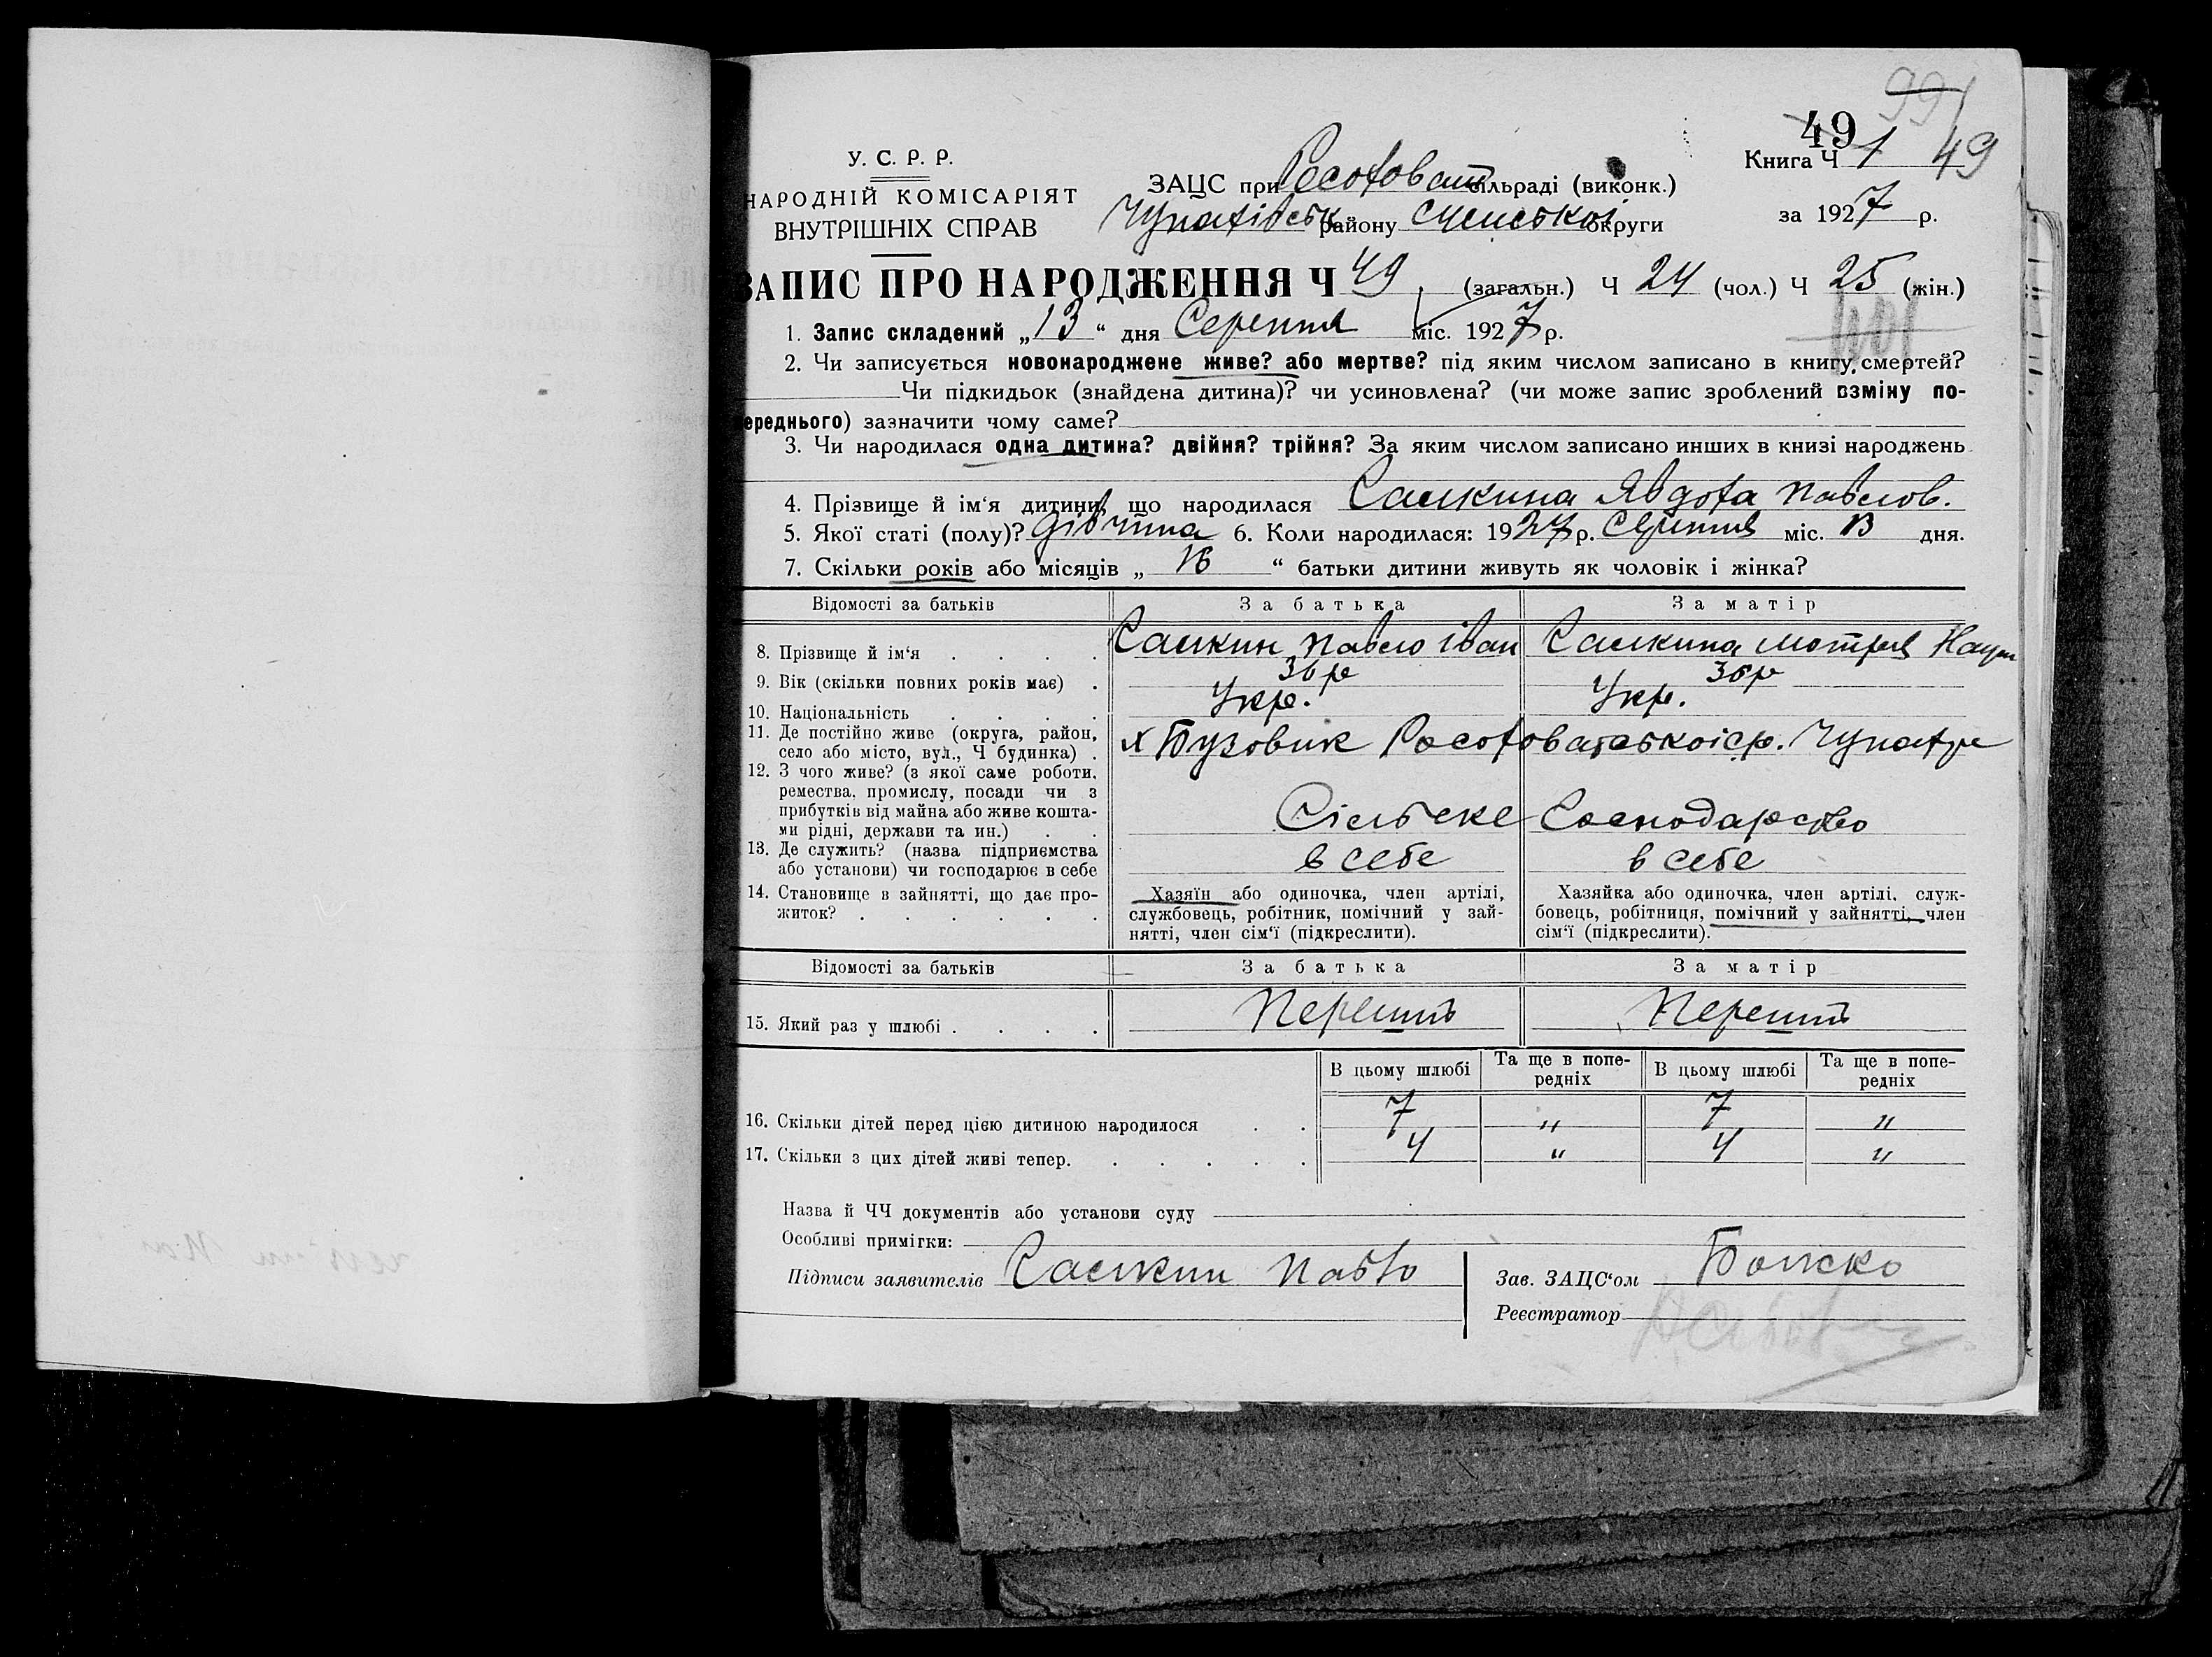 991
49
У. С. Р. Р.
Книга Ч 1 49
НАРОДНІЙ КОМІСАРІЯТ
ВНУТРІШНІХ СПРАВ
ЗАЦС при сільраді (виконк.)
Чупахівськ району Сумської округи
за 1927 р.
ЗАПИС ПРО НАРОДЖЕННЯ Ч 49 (загальн.) Ч 24 (чол.) Ч 25 (жін.)
1. Запис складений „13“ дня Серепня міс. 1927 р.
2. Чи записується новонароджене живе? або мертве? під яким числом записано в книгу смертей?
Чи підкидьок (знайдена дитина)? чи усиновлена? (чи може запис зроблений взміну по-
ереднього) зазначити чому саме?
3. Чи народилася одна дитина? двійня? трійня? За яким числом записано инших в книзі народжень
4. Прізвище й ім‘я дитини, що народилася Саликина Явдоха Павлов.
5. Якої статі (полу)? дівчина 6. Коли народилася: 1927 р. Серпня міс. 13 дня.
7. Скільки років або місяців „ 16 “ батьки дитини живуть як чоловік і жінка?
Відомості за батьків За батька За матір
8. Прізвище й ім‘я . . . . Саликин Павло Іван Саликина Мотря Наум
9. Вік (скільки повних років має) . 36 р 36 р
10. Національність . . . . Укр. Укр.
11. Де постійно живе (округа, район,
село або місто, вул., Ч будинка) . х Бузовик Чупах р
12. З чого живе? (з якої саме роботи,
ремества, промислу, посади чи з
прибутків від майна або живе кошта-
ми рідні, держави та ин.) . . Сільске Господарство
13. Де служить? (назва підприємства
або установи) чи господарює в себе в себе в себе
14. Становище в зайнятті, що дає про-
житок? . . . . . .
Хазяїн або одиночка, член артілі,
службовець, робітник, помічний у зай-
нятті, член сім‘ї (підкреслити).
Хазяйка або одиночка, член артілі, служ-
бовець, робітниця, помічний у зайнятті, член
сім‘ї (підкреслити).
Відомості за батьків За батька За матір
15. Який раз у шлюбі . . . . Перший Перший
В цьому шлюбі Та ще в попе-
редніх В цьому шлюбі Та ще в попе-
редніх
16. Скільки дітей перед цією дитиною народилося . . 7 „ 7 „
17. Скільки з цих дітей живі тепер. . . . . . 4 „ 4 „
Назва й ЧЧ документів або установи суду
Особливі примітки:
Підписи заявителів Саликин Павло
Зав. ЗАЦС‘ом
Реєстратор